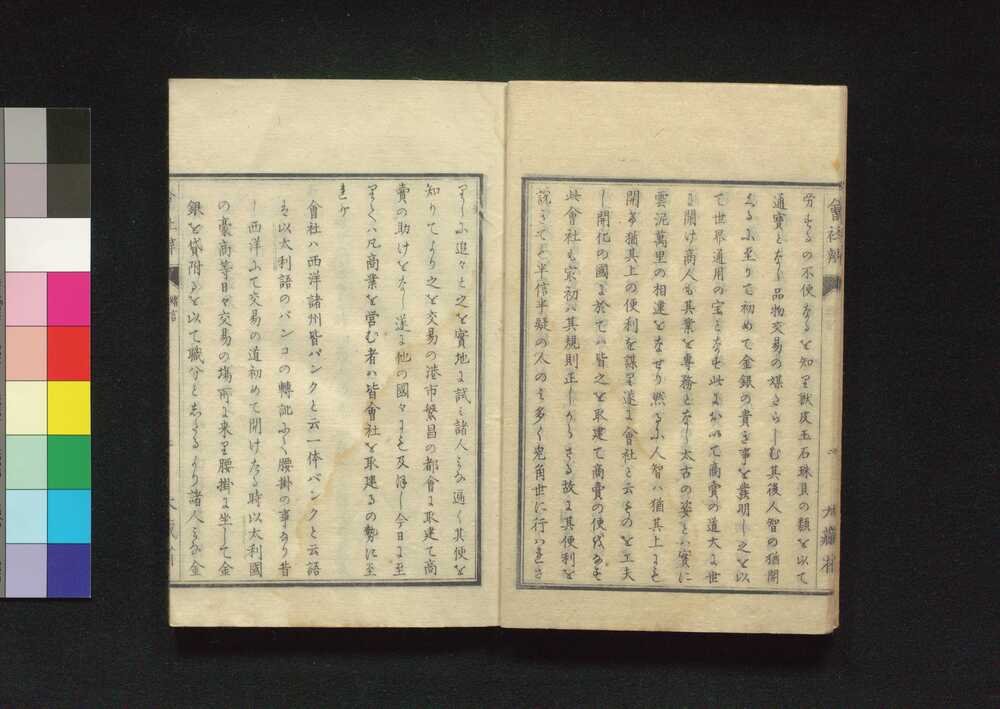 會社辨
労するの不便なるを知り獣皮玉石珠貝の類を以て
通寶となし品物交易の媒さらしむ其後人智の猶開
くるに至りて初めて金銀の貴き事を發明し之を以
て世界通用の宝となせり此よおいて商賣の道大に世
に開け商人も其業を専務となし太古の姿とハ實に
雲泥萬里の相違をなせり然るに人智ハ猶其上にも
開け猶其上の便利を謀り遂に會社と云ものを工夫
し開化の國に於てハ皆之を取建て商賣の便
此會社も最初ハ其規則正しからさる故に其便利を
説きても半信半疑の人のミ多く兎角世に行ハれさ
りしに追々と之を實地に試ミ諸人ミな遍く其便を
知りてより之を交易の港市繁昌の都會に取建て商
賣の助けとなし遂に他の國々にも及ほし今日に至
りてハ凡商業を営む者ハ皆會社を取建るの勢に至
れり
會社ハ西洋諸州皆バンクと云一体バンクと云語
ハ以太利語のバンコの轉訛にて腰掛の事なり昔
し西洋にて交易の道初めて開けたる時以太利國
の豪商等日々交易の場所に来り腰掛に坐して金
銀を貸附るを以て職分としたるより諸人ミな金
緒言